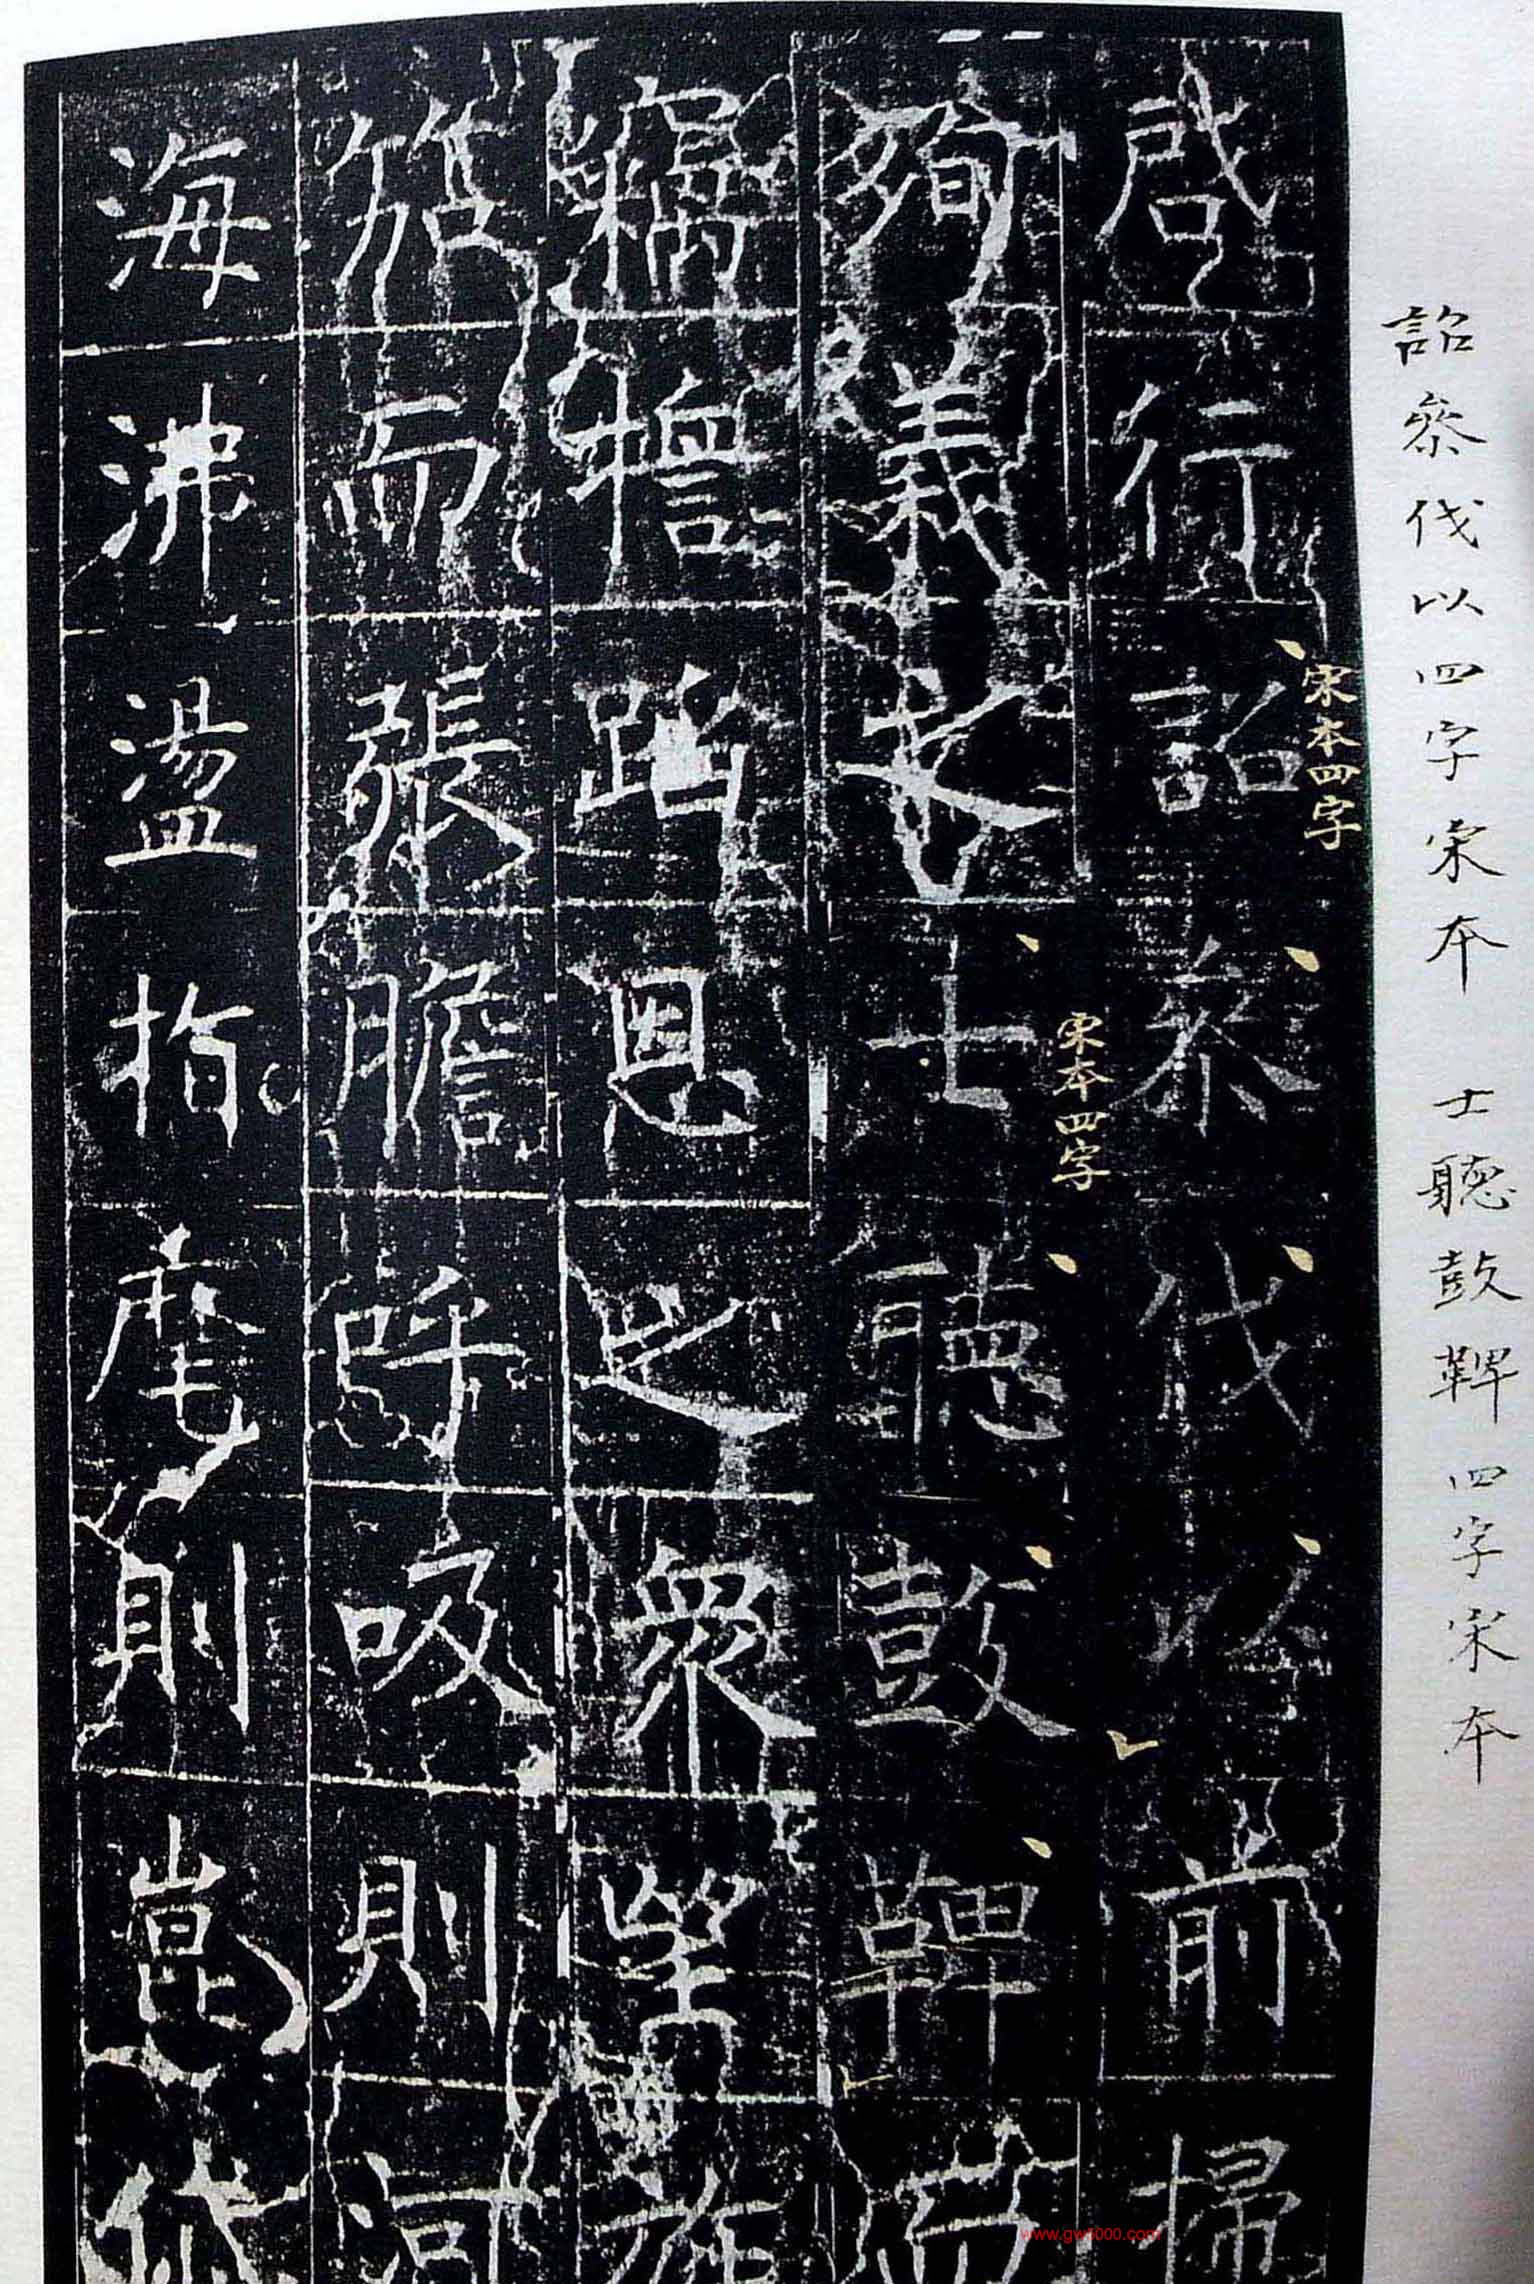 詔參伐以四字宋本 士聽鼓鞞四字宋本
宋本四字
啟行詔參伐以前掃
宋本四字
殉義之士聽鼓鞞而
竊蹈恩之衆望旌
而張膽呼吸則河
海沸盪指麾則崑岱
www.gw5000.com